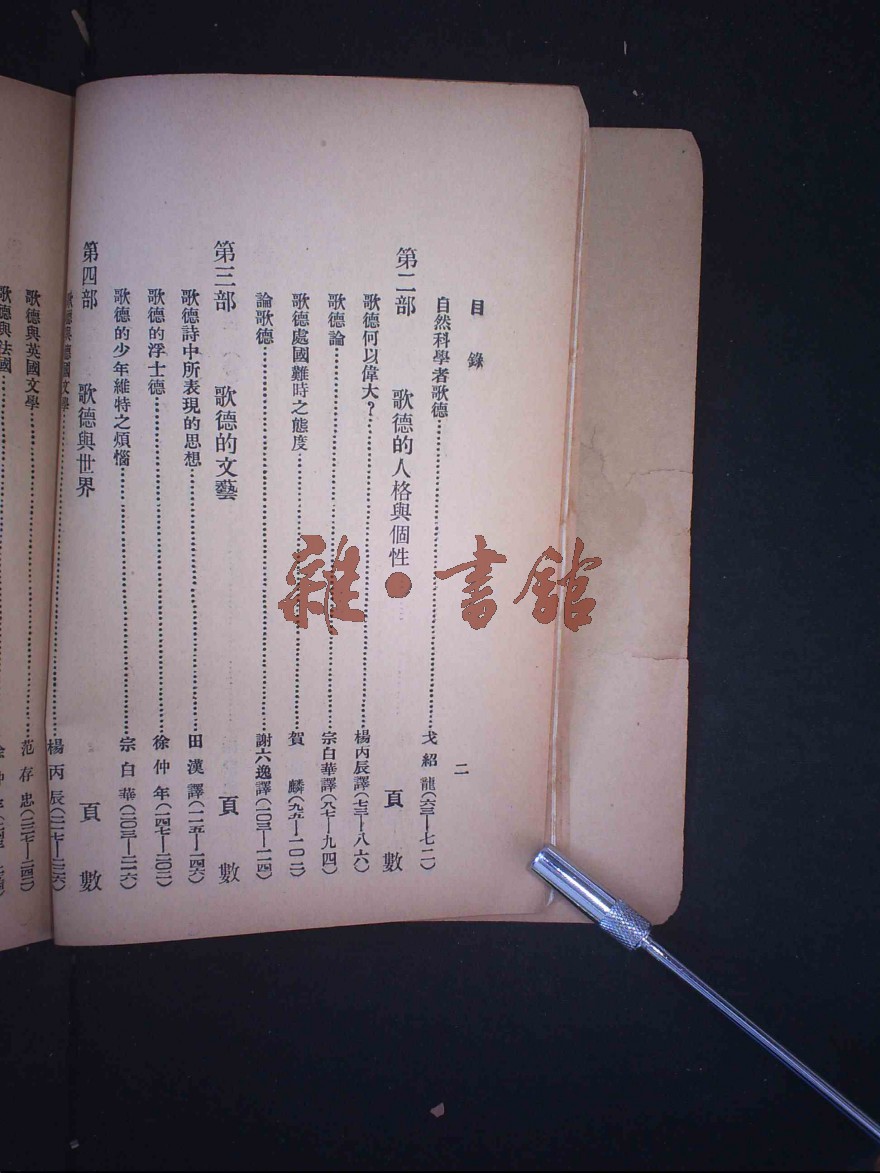 目錄
二
自然科學者歌德……戈紹龍(六三—七二)
第二部 歌德的人格與個性 頁數
歌德何以偉大?……楊丙辰譯(七三—八六)
歌德論……宗白華譯(八七—九四)
歌德處國難時之態度……賀麟(九五—一〇二)
論歌德……謝六逸譯(一〇三—一一四)
第三部 歌德的文藝 頁數
歌德詩中所表現的思想……田漢譯(一一五—一四六)
歌德的浮士德……徐仲年(一四七—二〇二)
歌德的少年維特之煩惱……宗白華(二〇三—二一六)
第四部 歌德與世界 頁數
歌德與德國文學……楊丙辰(二一七—二二六)
歌德與英國文學……范存忠(二二七—二四二)
歌德與法國
雜·書館